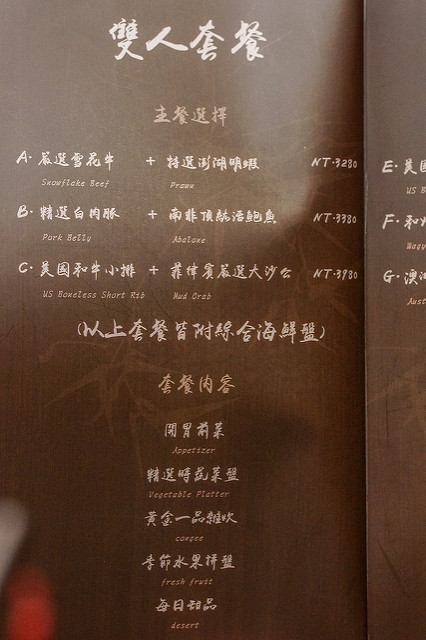 雙人套餐
主餐選擇
A. 嚴選雪花牛 + 特選澎湖明蝦 NT.3280
Snowflake Beef Prawn
B. 精選白肉豚 + 南非頂級活鮑魚 NT.3380
Pork Belly Abalone
C. 美國和牛小排 + 菲律賓嚴選大沙公 NT.3980
US Boneless Short Rib Mud Crab
(以上套餐皆附綜合海鮮盤)
套餐內容
開胃前菜
Appetizer
精選時蔬菜盤
Vegetable Platter
黃金一品雜炊
congee
季節水果拼盤
fresh fruit
每日甜品
desert
E. 美國
US B
F. 和牛
Wagy
G. 澳洲
Aust